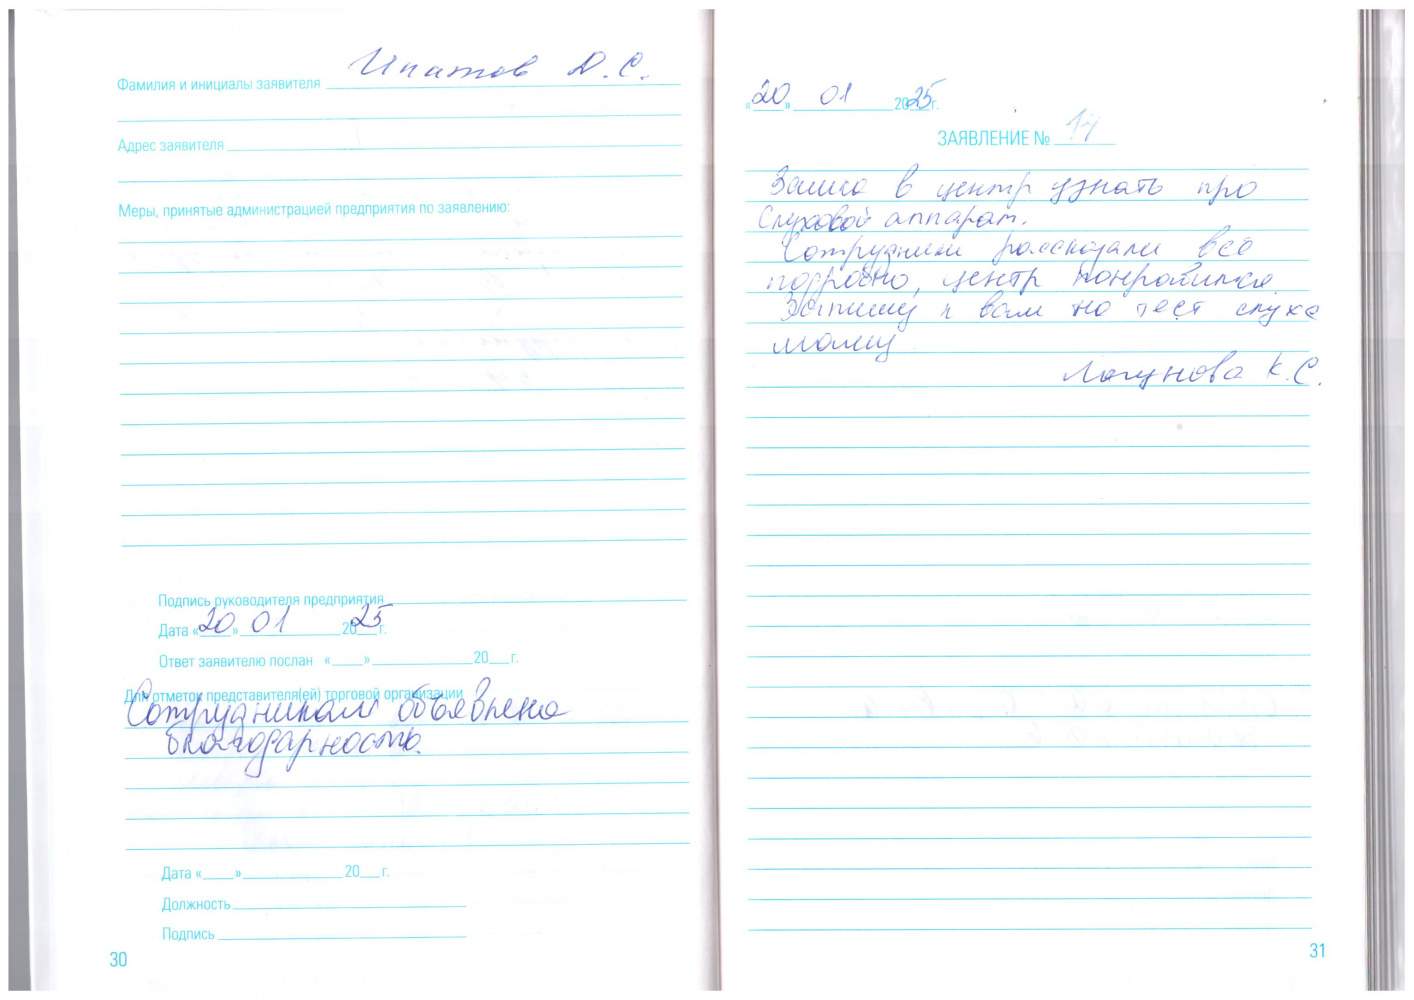 Фамилия и инициалы заявителя Ипатов Д. С.
Адрес заявителя
Меры, принятые администрацией предприятия по заявлению:
Подпись руководителя предприятия
Дата «20» 01 2025 г.
Ответ заявителю послан « » 20 г.
Для отметок представителя(ей) торговой организации
Сотрудникам объявлена
благодарность.
Дата « » 20 г.
Должность
Подпись
30
«20» 01 2025 г.
ЗАЯВЛЕНИЕ № 14
Зашла в центр узнать про
Слуховой аппарат.
Сотрудники рассказали все
подробно, центр понравился.
Запишу к вам на тест слуха
маму
Лагунова К. С.
31